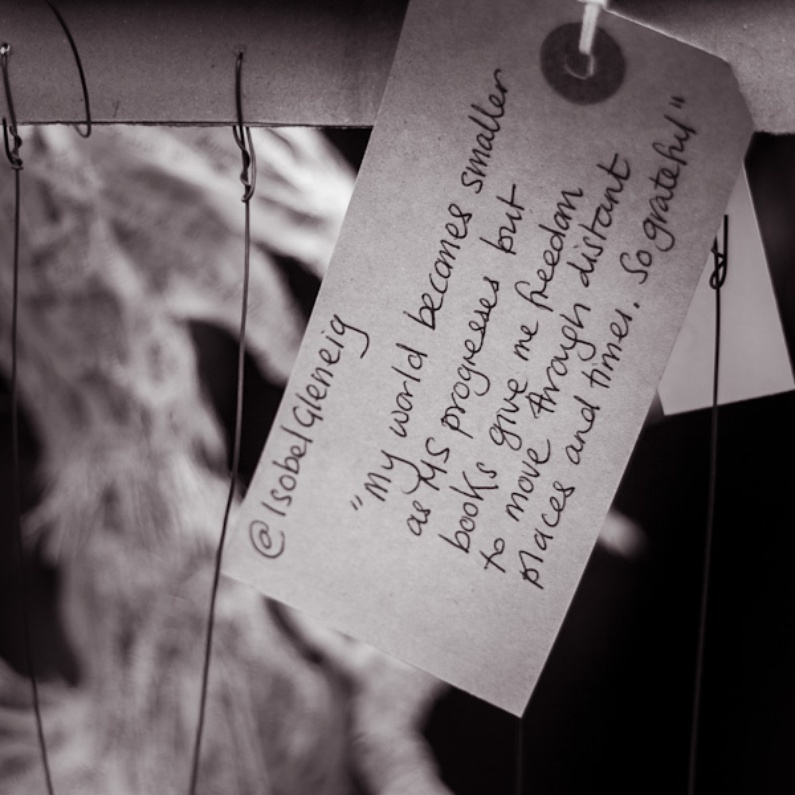 @IsobelGleneig
"My world becomes smaller
as MS progresses but
books give me freedom
to move through distant
places and times. So grateful"